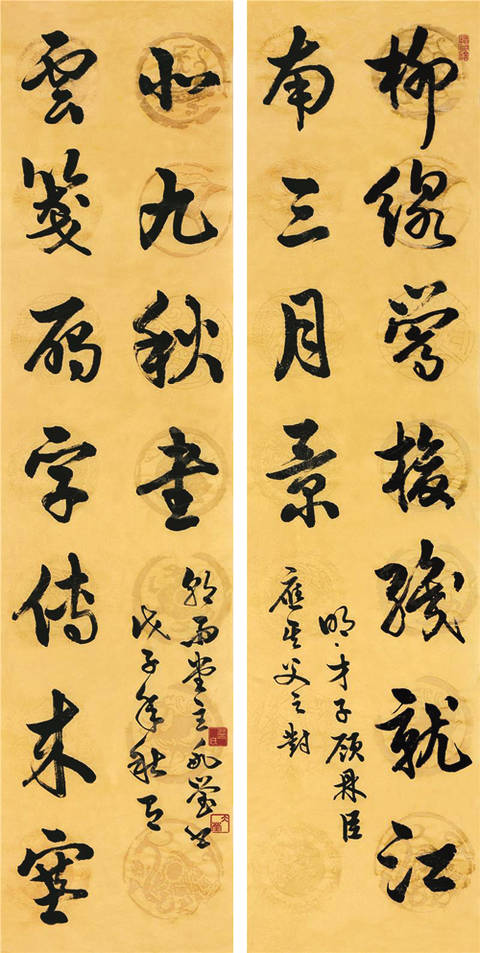 柳線鶯梭織就江
南三月景
明·才子顧鼎臣
應其父之對
雲箋雁字傳來塞
北九秋書
戊子年秋月
雨堂主